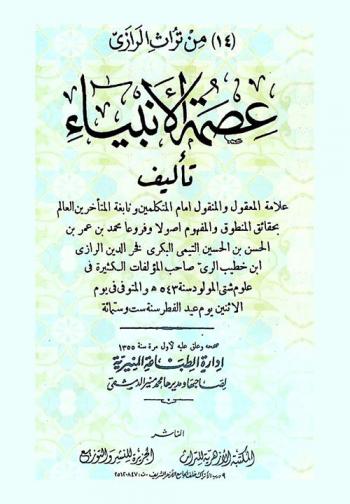 (١٤) من تراث الرازى
عصمة الأنبياء
تأليف
علامة المعقول والمنقول امام المتكلمين ونابغة المتأخرين العالم
بحقائق المنطوق والمفهوم اصولا وفروعا محمد بن عمر بن
الحسن بن الحسين التيمى البكرى فخر الدين الرازى
ابن خطيب الرى صاحب المؤلفات الكثيرة فى
علوم شتى المولود سنة ٥٤٣ھ والمتوفى فى يوم
الاثنين يوم عيد الفطر سنة ست وستمائة
صححه وعلق عليه لاول مرة سنة ١٣٥٥
إدارة الطباعة المنيرية
لصاحبها ومديرها محمد منير الدمشقى
الناشر
المكتبة الأزهرية للتراث الجزيرة للنشر والتوزيع
٩ درب الأتراك خلف الجامع الأزهر الشريف - ت : ٢٥١٢٠٨٤٧